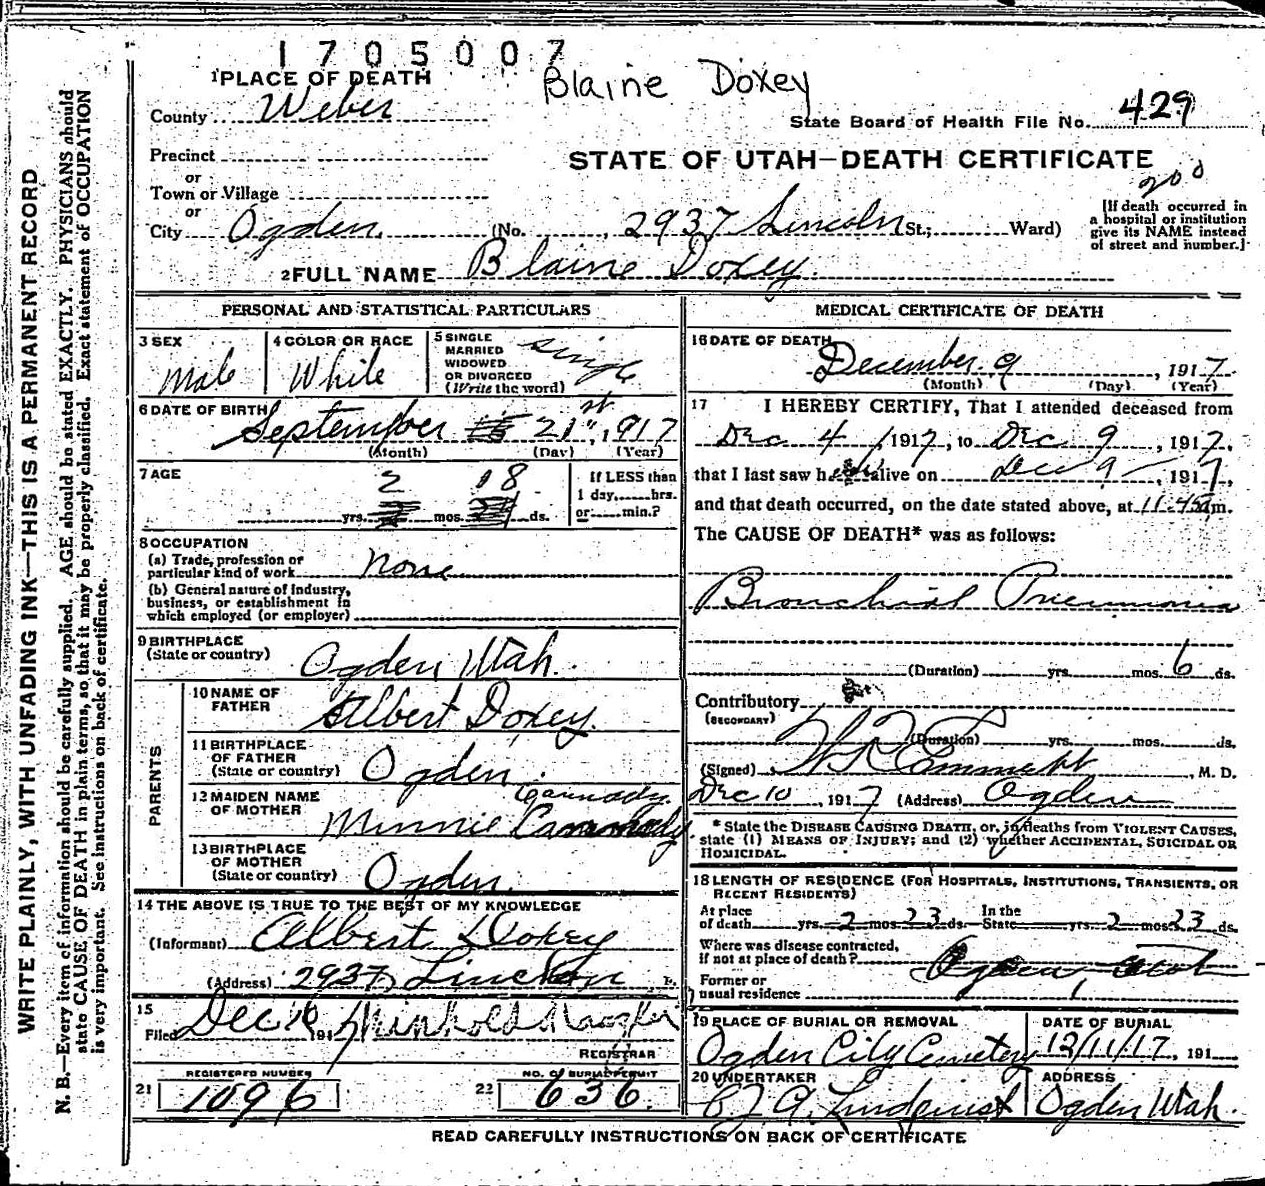 1705007
Blaine Doxey
1 PLACE OF DEATH
County Weber
State Board of Health File No. 429
Precinct
or
STATE OF UTAH—DEATH CERTIFICATE
200
Town or Village
or
City Ogden (No. , 2937 Lincoln St.; Ward)
[If death occurred in
a hospital or institution
give its NAME instead
of street and number.]
2 FULL NAME Blaine Doxey
PERSONAL AND STATISTICAL PARTICULARS
3 SEX Male
4 COLOR OR RACE White
5 SINGLE
MARRIED
WIDOWED
OR DIVORCED
(Write the word) single
6 DATE OF BIRTH September 21st, 1917
(Month) (Day) (Year)
7 AGE
2 18
yrs. mos. ds.
If LESS than
1 day, hrs.
or min.?
8 OCCUPATION
(a) Trade, profession or
particular kind of work None
(b) General nature of industry,
business, or establishment in
which employed (or employer)
9 BIRTHPLACE
(State or country) Ogden Utah.
PARENTS
10 NAME OF
FATHER Albert Doxey.
11 BIRTHPLACE
OF FATHER
(State or country) Ogden.
12 MAIDEN NAME
OF MOTHER Minnie
13 BIRTHPLACE
OF MOTHER
(State or country) Ogden.
14 THE ABOVE IS TRUE TO THE BEST OF MY KNOWLEDGE
(Informant) Albert Doxey
(Address) 2937 Lincoln
15
Filed Dec 10 191
REGISTRAR
REGISTERED NUMBER
21 1096
NO. OF BURIAL PERMIT
22 636.
MEDICAL CERTIFICATE OF DEATH
16 DATE OF DEATH
December 9, 1917
(Month) (Day) (Year)
17 I HEREBY CERTIFY, That I attended deceased from
Dec 4, 1917, to Dec 9, 1917,
that I last saw h alive on Dec 9 1917,
and that death occurred, on the date stated above, at 11-45am.
The CAUSE OF DEATH* was as follows:
Bronchial Pneumonia
(Duration) yrs. mos. 6 ds.
Contributory
(SECONDARY)
(Duration) yrs. mos. ds.
(Signed) Emmett, M. D.
Dec 10, 1917 (Address) Ogden
* State the DISEASE CAUSING DEATH, or, in deaths from VIOLENT CAUSES,
state (1) MEANS OF INJURY; and (2) whether ACCIDENTAL, SUICIDAL OR
HOMICIDAL.
18 LENGTH OF RESIDENCE (FOR HOSPITALS, INSTITUTIONS, TRANSIENTS, OR
RECENT RESIDENTS)
At place
of death yrs. 2 mos. 23 ds.
In the
State yrs. 2 mos. 23 ds.
Where was disease contracted,
if not at place of death? Ogden,
Former or
usual residence
19 PLACE OF BURIAL OR REMOVAL
Ogden City Cemetery
DATE OF BURIAL
12/11/17, 191
20 UNDERTAKER
Lindquist
ADDRESS
Ogden Utah.
READ CAREFULLY INSTRUCTIONS ON BACK OF CERTIFICATE
WRITE PLAINLY, WITH UNFADING INK—THIS IS A PERMANENT RECORD
N. B.—Every item of information should be carefully supplied. AGE should be stated EXACTLY. PHYSICIANS should
state CAUSE OF DEATH in plain terms, so that it may be properly classified. Exact statement of OCCUPATION
is very important. See instructions on back of certificate.